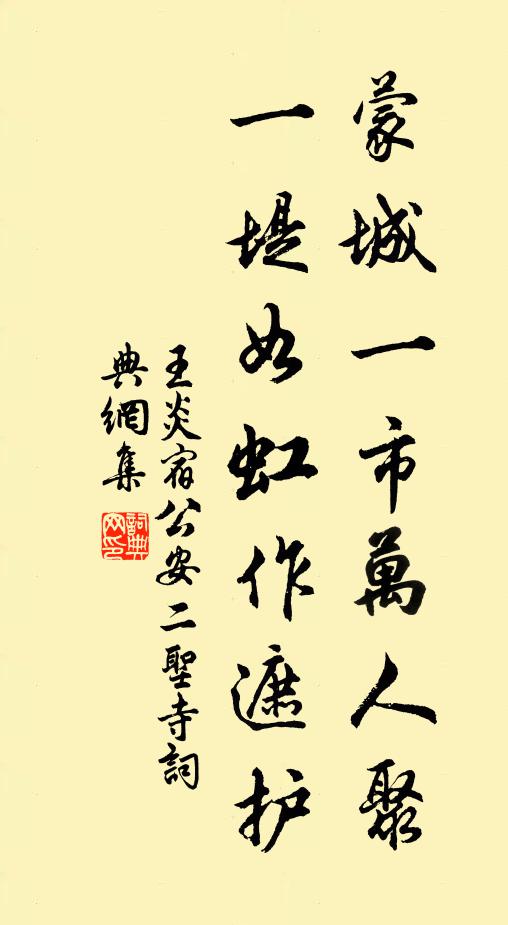 蒙城一市萬人聚
一堤如虹作遮护
王炎宿公安二聖寺詞
典網集
詞典
网印